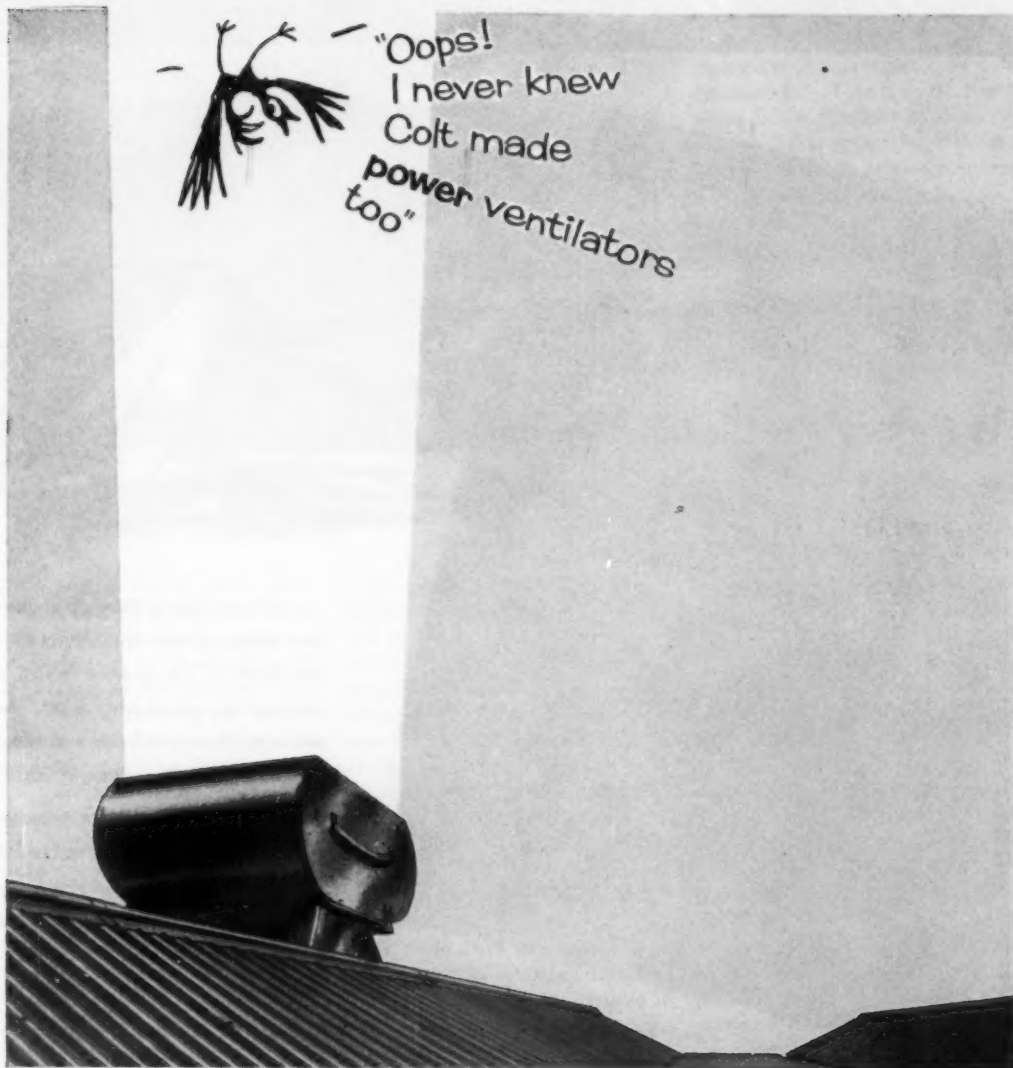 "Oops!
I never knew
Colt made
power ventilators
too"